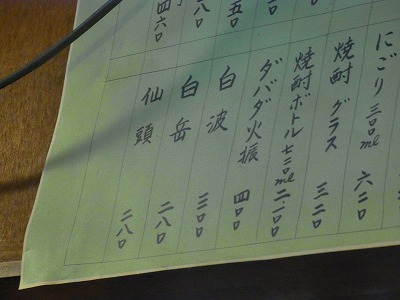 にごり 三〇〇ml 六二〇
焼酎 グラス 三二〇
焼酎ボトル 七二〇ml 二、一〇〇
ダバダ火振 四〇〇
白波 三〇〇
白岳 二八〇
仙頭 二八〇
五〇
八〇
四六〇